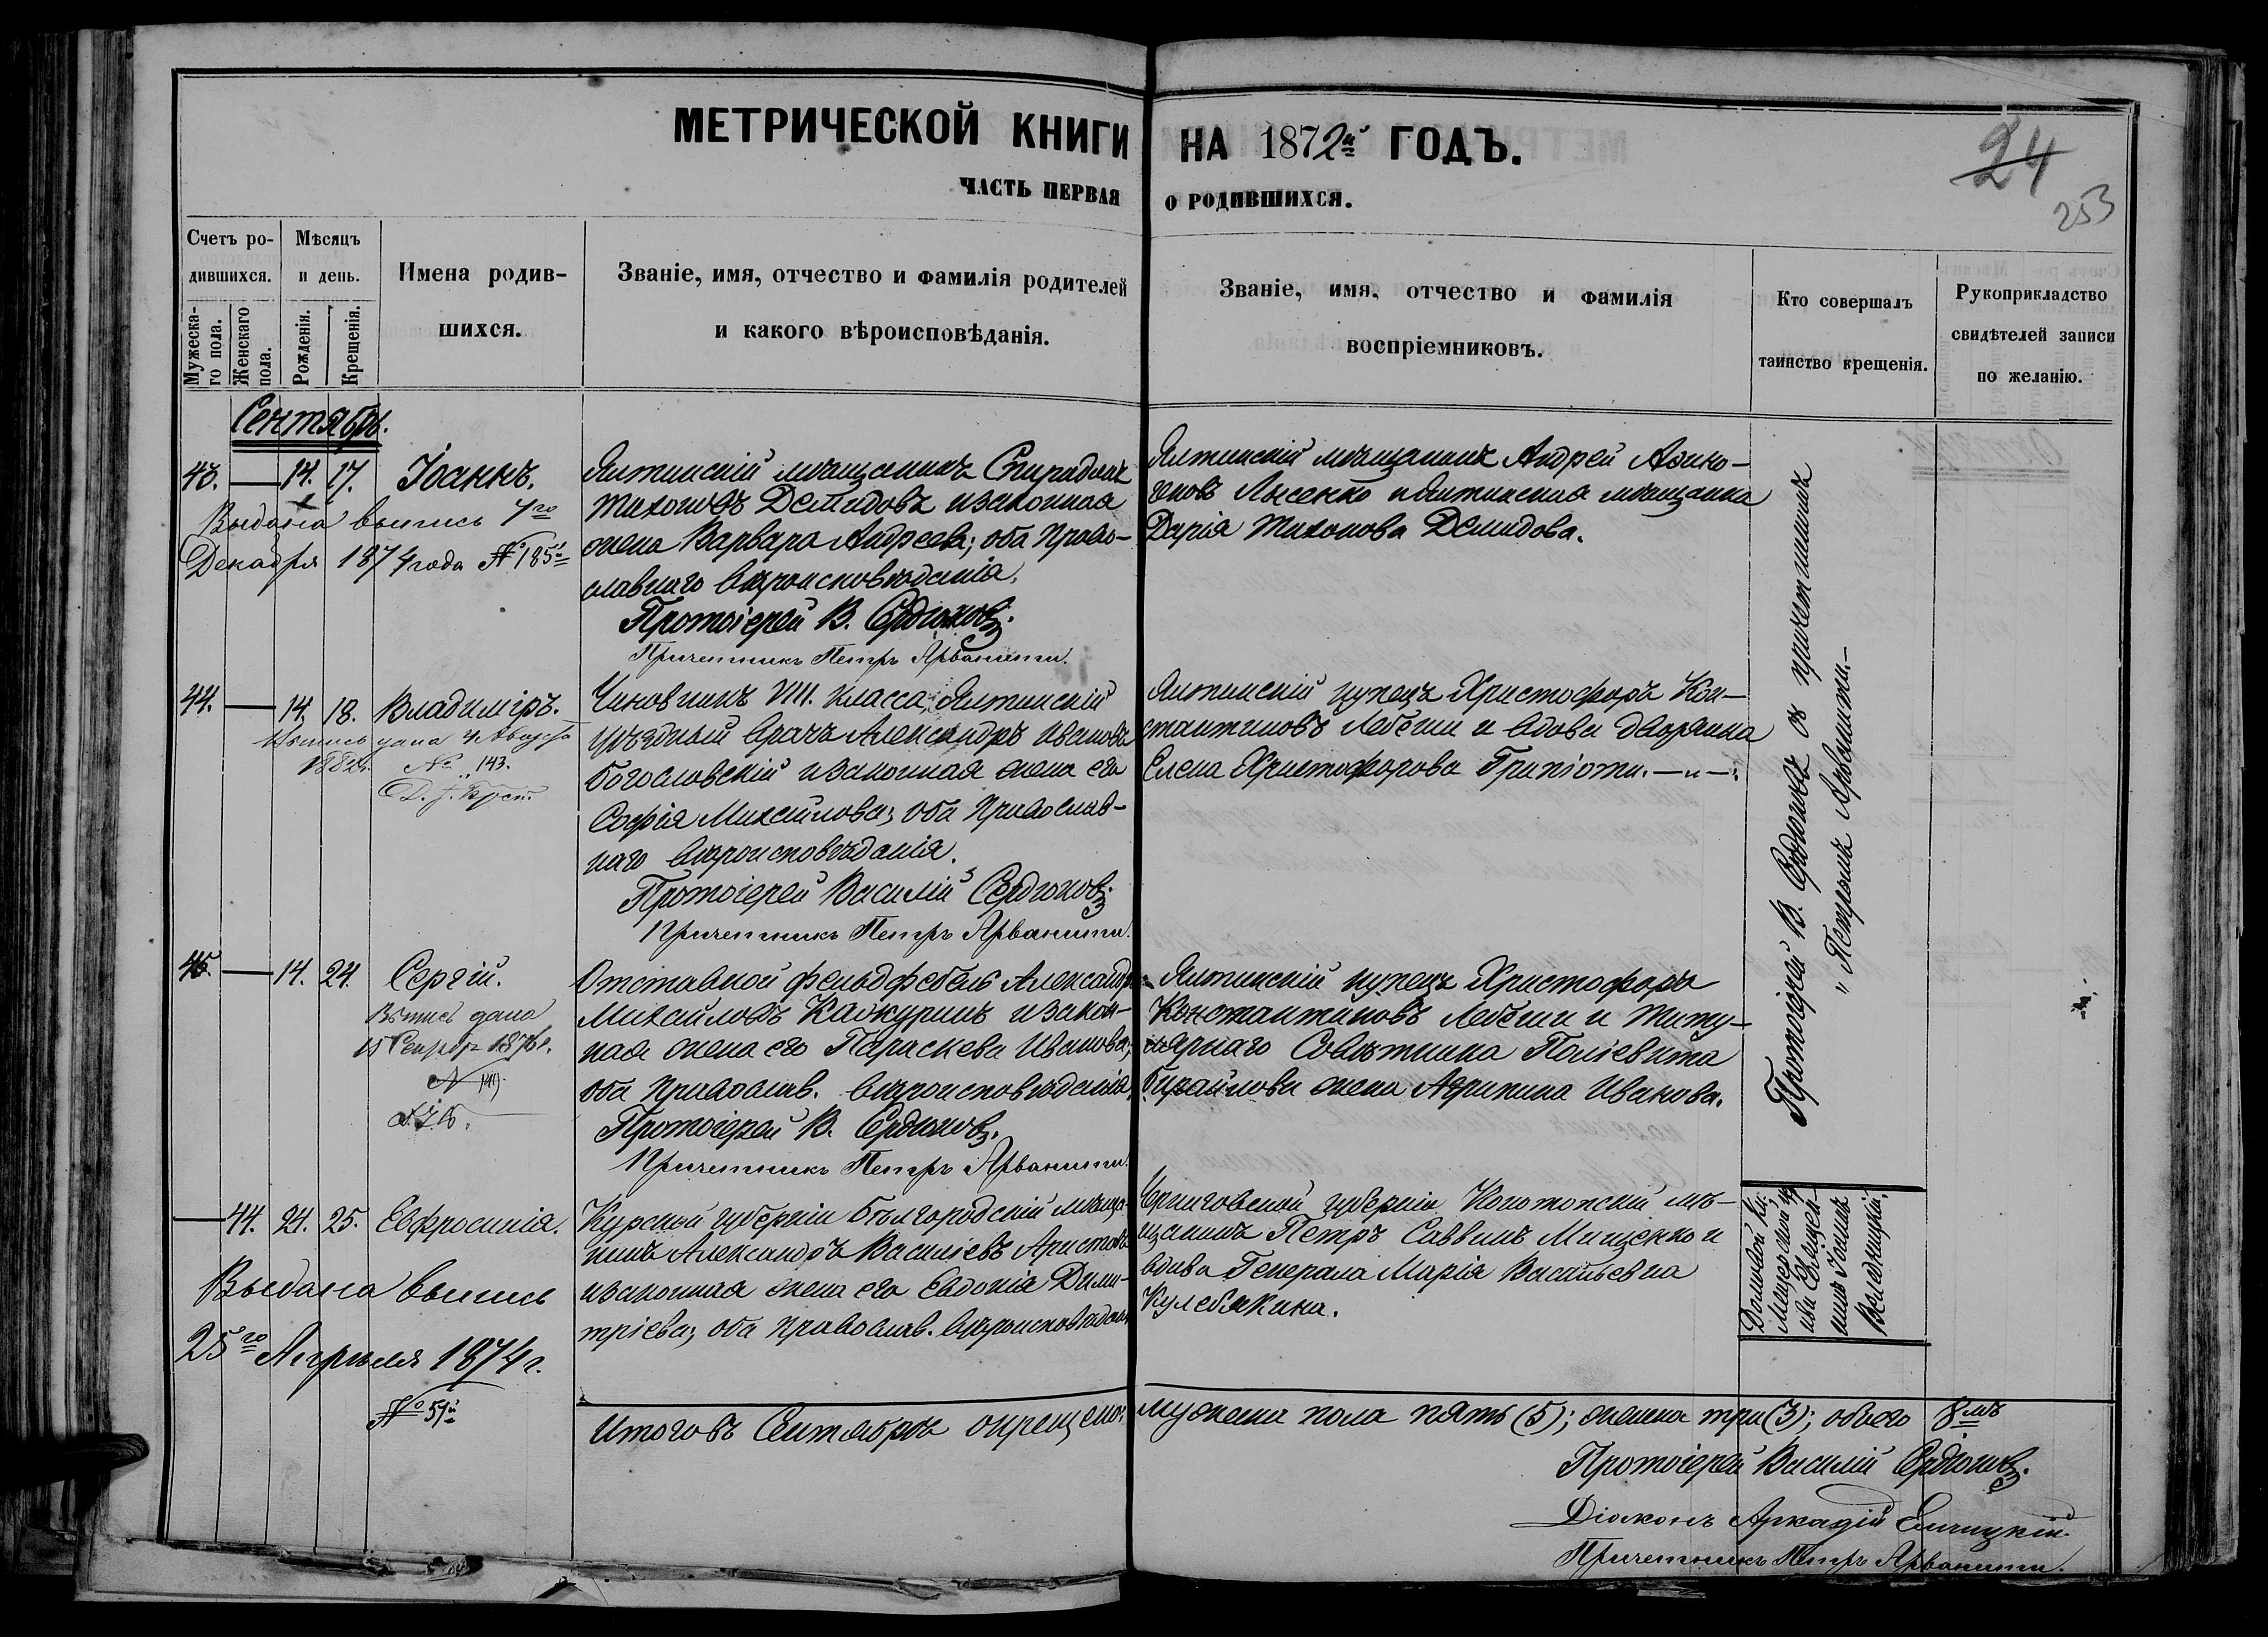 МЕТРИЧЕСКОЙ КНИГИ НА 1872й ГОДЪ.
24
253
ЧАСТЬ ПЕРВАЯ О РОДИВШИХСЯ.
Счетъ ро-
дившихся.
Мужеска-
го пола.
Женскаго
пола.
Мѣсяцъ
и день.
Рожденія.
Крещенія.
Имена родив-
шихся.
Званіе, имя, отчество и фамилія родителей
и какого вѣроисповѣданія.
Званіе, имя, отчество и фамилія
воспріемниковъ.
Кто совершалъ
таинство крещенія.
Рукоприкладство
свидѣтелей записи
по желанію.
Сентябрь.
43. — 14. 17. Іоаннъ.
Выдана выпись 7го
Декабря 1874 года № 185й
Ялтинскій мѣщанинъ Спиридонъ
Тихоновъ Демидовъ и законная
жена Варвара Андреева; оба Право-
славнаго вѣроисповѣданія.
Протоіерей В. Сердюковъ.
Причетникъ Петръ Арванити.
Ялтинскій мѣщанинъ Андрей
Лысенко и Ялтинская мѣщанка
Дарія Тихонова Демидова.
44. — 14. 18. Владиміръ.
Выпись дана 4 Августа
1882г. № 143.
Чиновникъ VIII. класса, Ялтинскій
уѣздный врачъ Александръ Ивановъ
Богословскій и законная жена его
Софія Михайлова; оба Православ-
наго вѣроисповѣданія.
Протоіерей Василій Сердюковъ.
Причетникъ Петръ Арванити.
Ялтинскій купецъ Христофоръ Кон-
стантиновъ и вдова дворянка
Елена Христофорова
45. — 14. 24. Сергій.
Выпись дана
15 1876г.
Отставной фельдфебель Александръ
Михайловъ и закон-
ная жена его Параскева Иванова;
оба православ. вѣроисповѣданія.
Протоіерей В. Сердюковъ.
Причетникъ Петръ Арванити.
Ялтинскій купецъ Христофоръ
Константиновъ и Титу-
лярнаго Совѣтника
жена Агрипина Иванова.
Протоіерей В. Сердюковъ съ причетникомъ
Петромъ Арванити.—
— 44. 24. 25. Евфросинія.
Выдана выпись
25го Апрѣля 1874г.
№ 51й
Курской губерніи Бѣлгородскій мѣща-
нинъ Александръ Василіевъ Аристовъ
и законная жена его Евдокія Дими-
тріева; оба православ. вѣроисповѣдан.
Черниговской губерніи Конотопскій мѣ-
щанинъ Петръ Саввинъ Мищенко и
вдова Генерала Марія Васильевна
Кулебякина.
Итого въ Сентябрѣ окрещено: мужеска пола пять (5); женска три (3); обоего 8мь
Протоіерей Василій Сердюковъ.
Діаконъ Аркадій
Причетникъ Петръ Арванити.